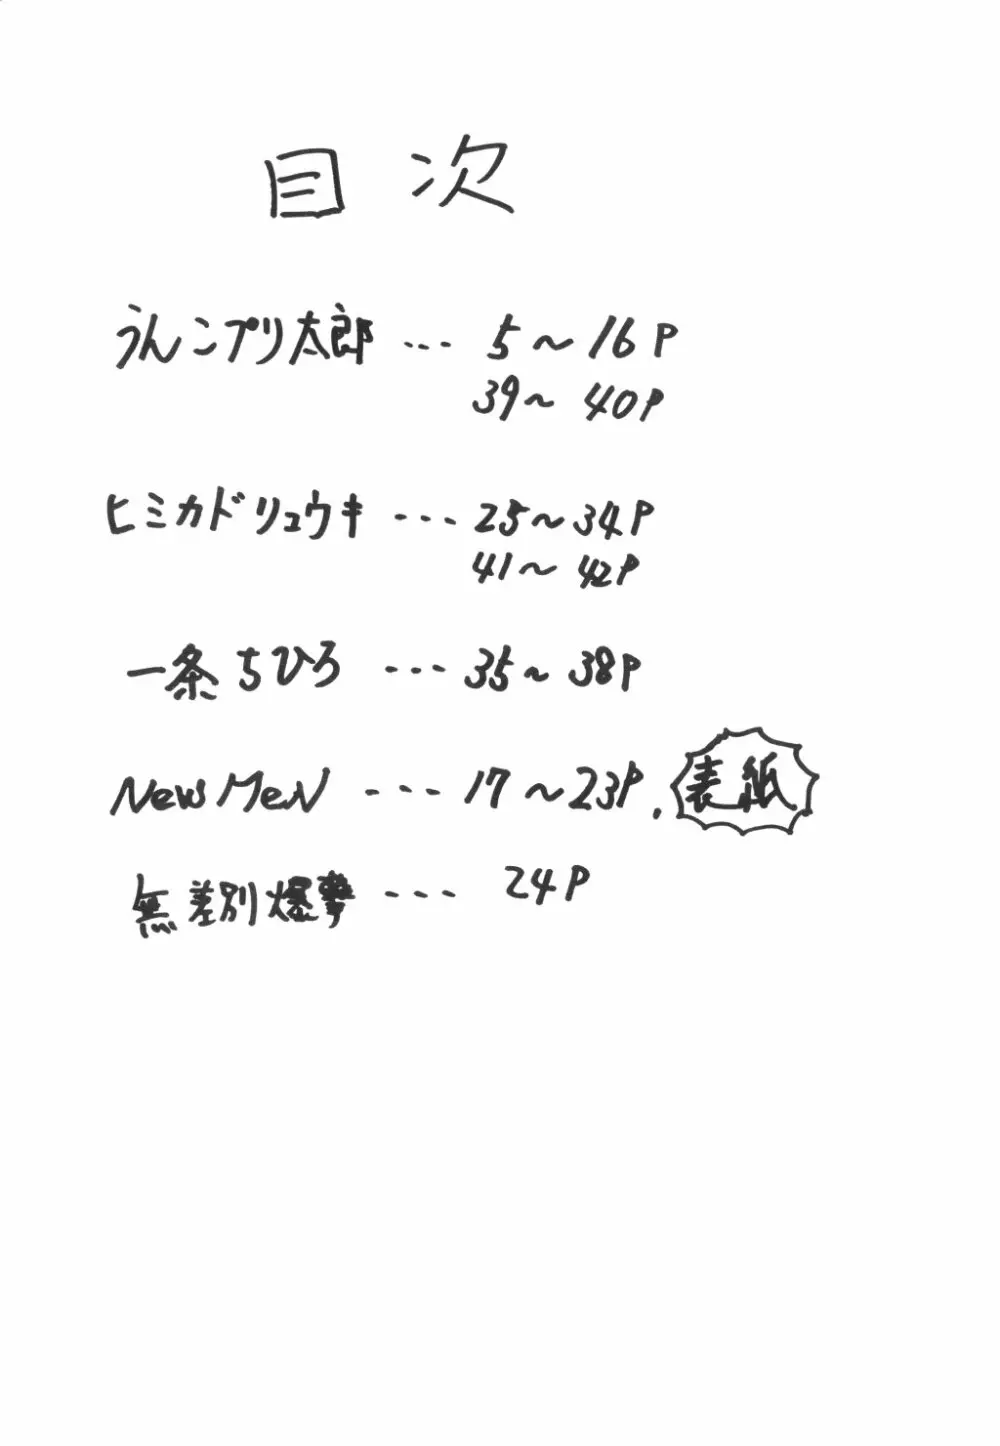 目次
うんこプリ太郎 ... 5～16P
39～40P
ヒミカドリュウキ ... 25～34P
41～42P
一条ちひろ ... 35～38P
NewMeN ... 17～23P. 表紙
無差別爆撃 ... 24P